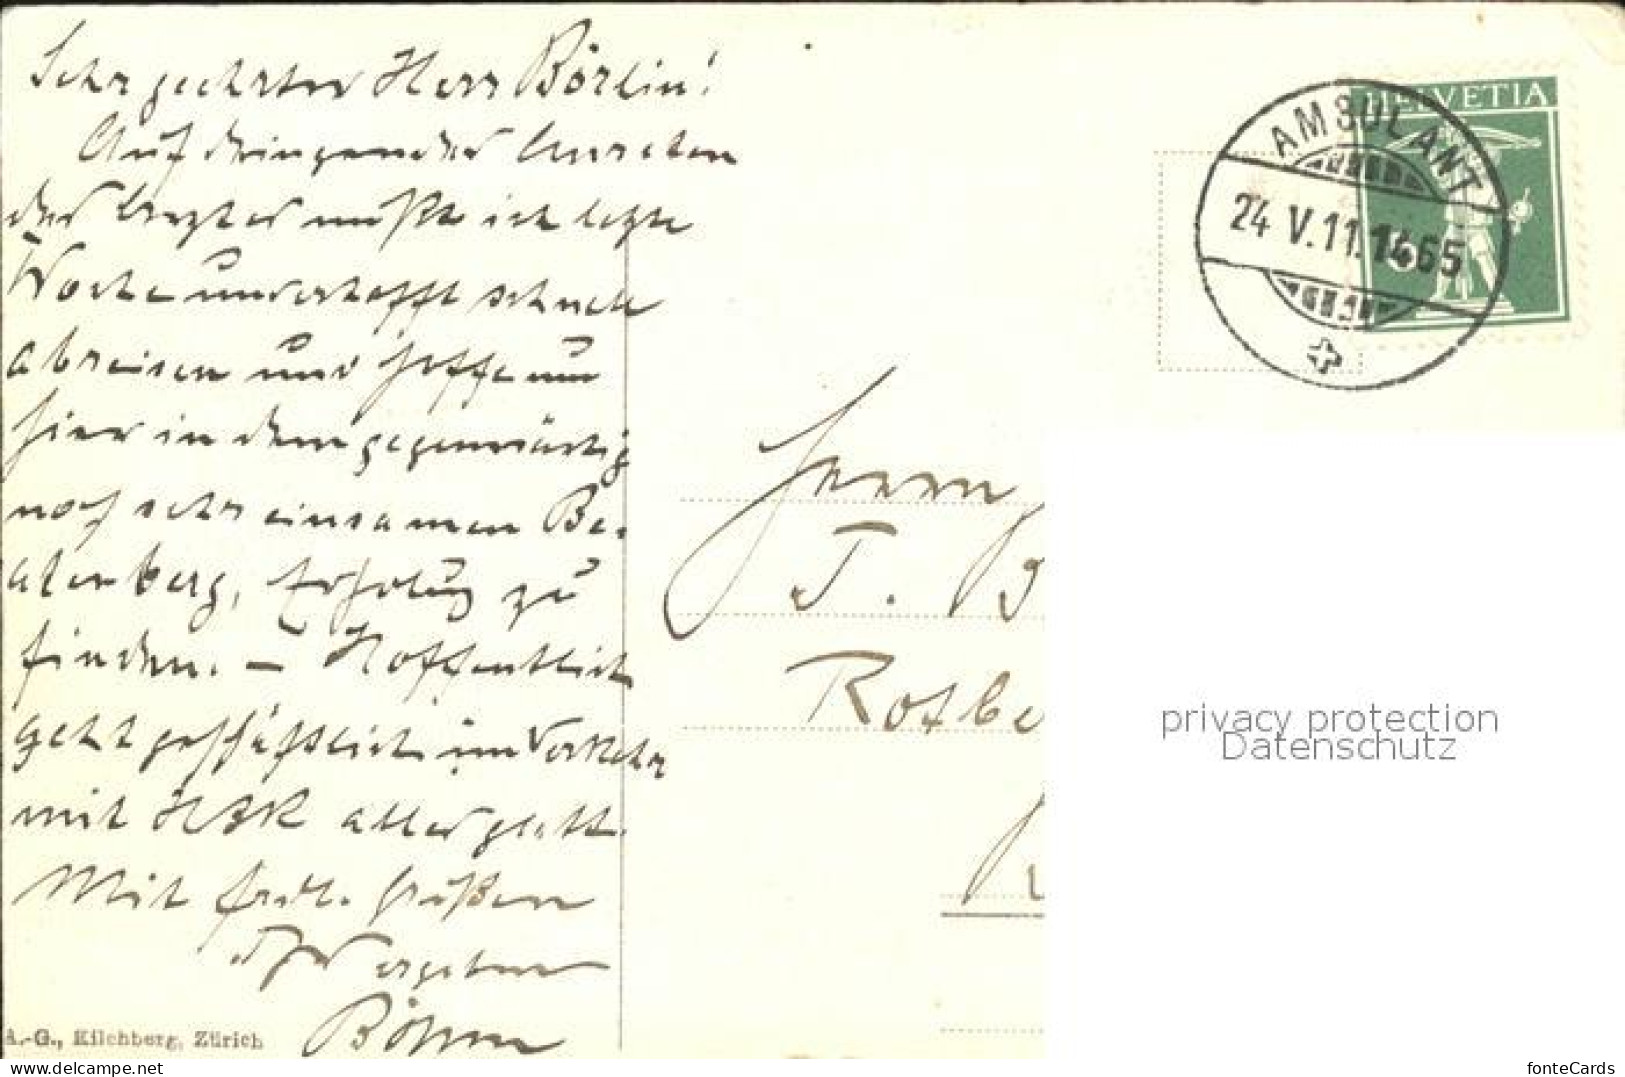 Sehr geehrter Herr Börlin!
Auf dringendes Anraten
der Ärzte mußte ich letzte
Woche unverhofft schnell
abreisen und hoffe nun
hier in dem gegenwärtig
noch sehr einsamen Be-
atenberg, Erholung zu
finden. – Hoffentlich
geht geschäftlich im Verkehr
mit alles glatt.
Mit frdl. Grüßen
Ihr ergebener
Böhm
A.-G., Kilchberg, Zürich
HELVETIA
AMBULANT
24 V.11. 1465
Herrn
J. B
Rotbe
privacy protection
Datenschutz
www.delcampe.net
fonteCards